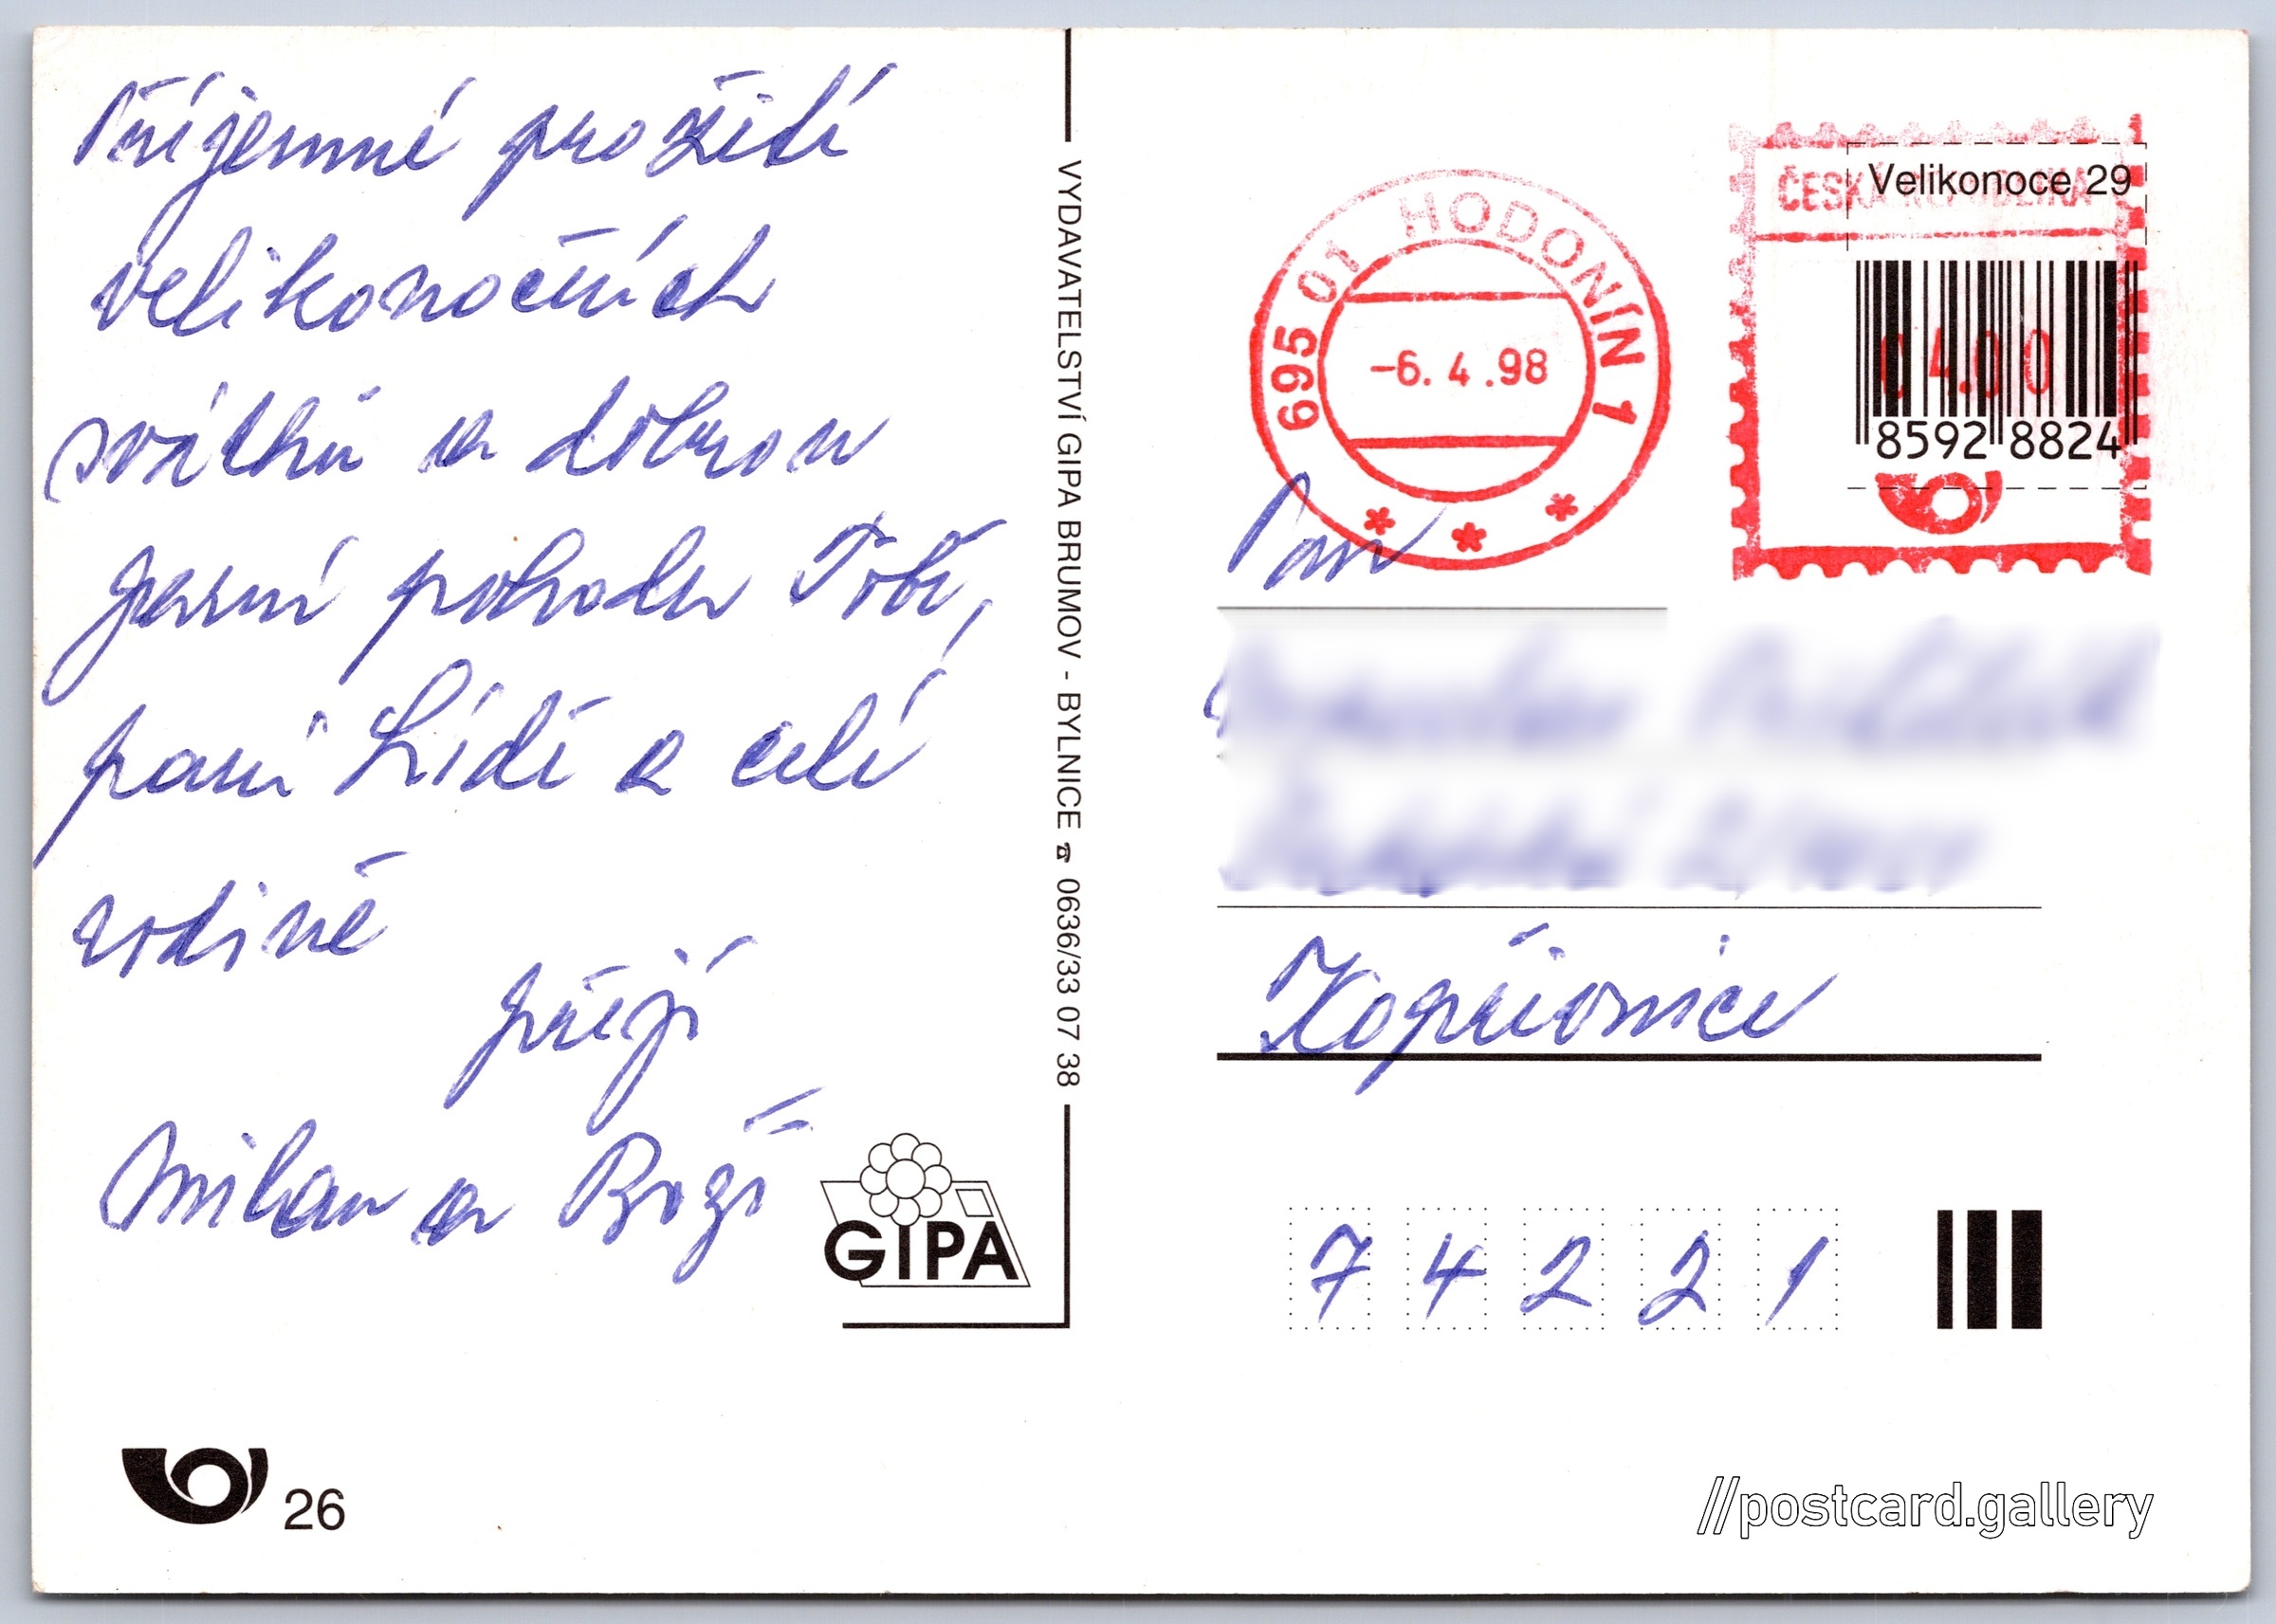 Příjemné prožití
velikonočních
svátků a dobrou
jarní pohodu Tobě,
paní Lídě a celé
rodině
přejí
Milan a Boží
VYDAVATELSTVÍ GIPA BRUMOV - BYLNICE ☎ 0636/33 07 38
GIPA
26
695 01 HODONÍN 1
-6.4.98
* * *
ČESKÁ REPUBLIKA
Velikonoce 29
04.00
8592 8824
Pan
Kopřivnice
7 4 2 2 1
//postcard.gallery